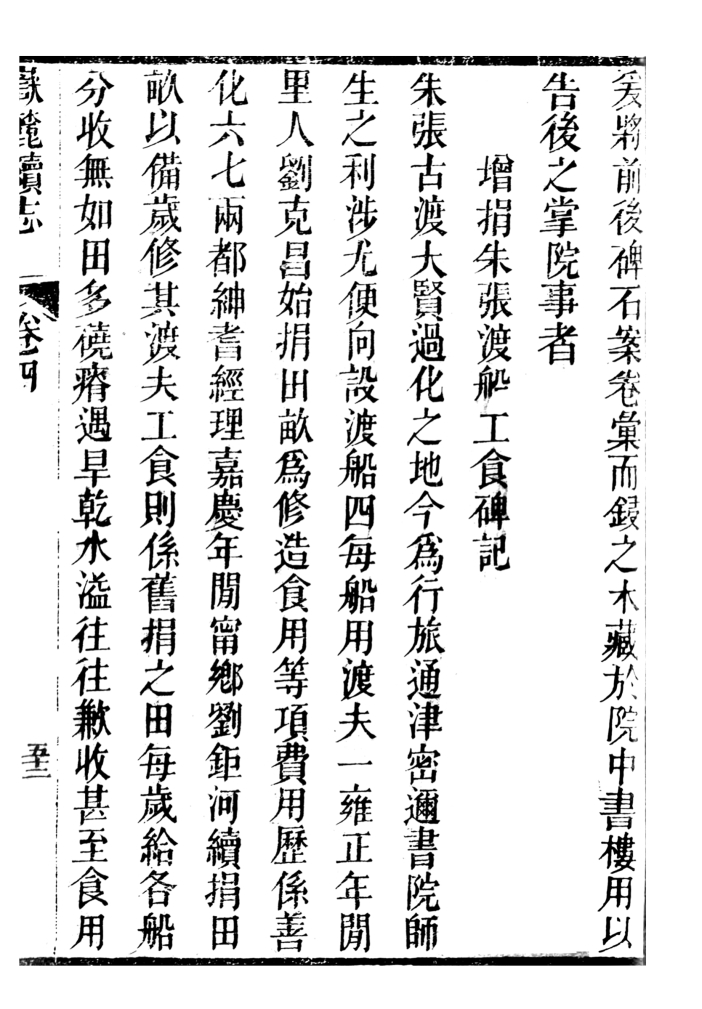 爰將前後碑石案卷彙而鋟之木藏於院中書樓用以
告後之掌院事者
增捐朱張渡船工食碑記
朱張古渡大賢過化之地今爲行旅通津密邇書院師
生之利涉尤便向設渡船四每船用渡夫一雍正年閒
里人劉克昌始捐田畝爲修造食用等項費用歷係善
化六七兩都紳耆經理嘉慶年閒甯鄉劉鉅河續捐田
畝以備歲修其渡夫工食則係舊捐之田每歲給各船
分收無如田多磽瘠遇旱乾水溢往往歉收甚至食用
嶽麓續志 卷四 五十三